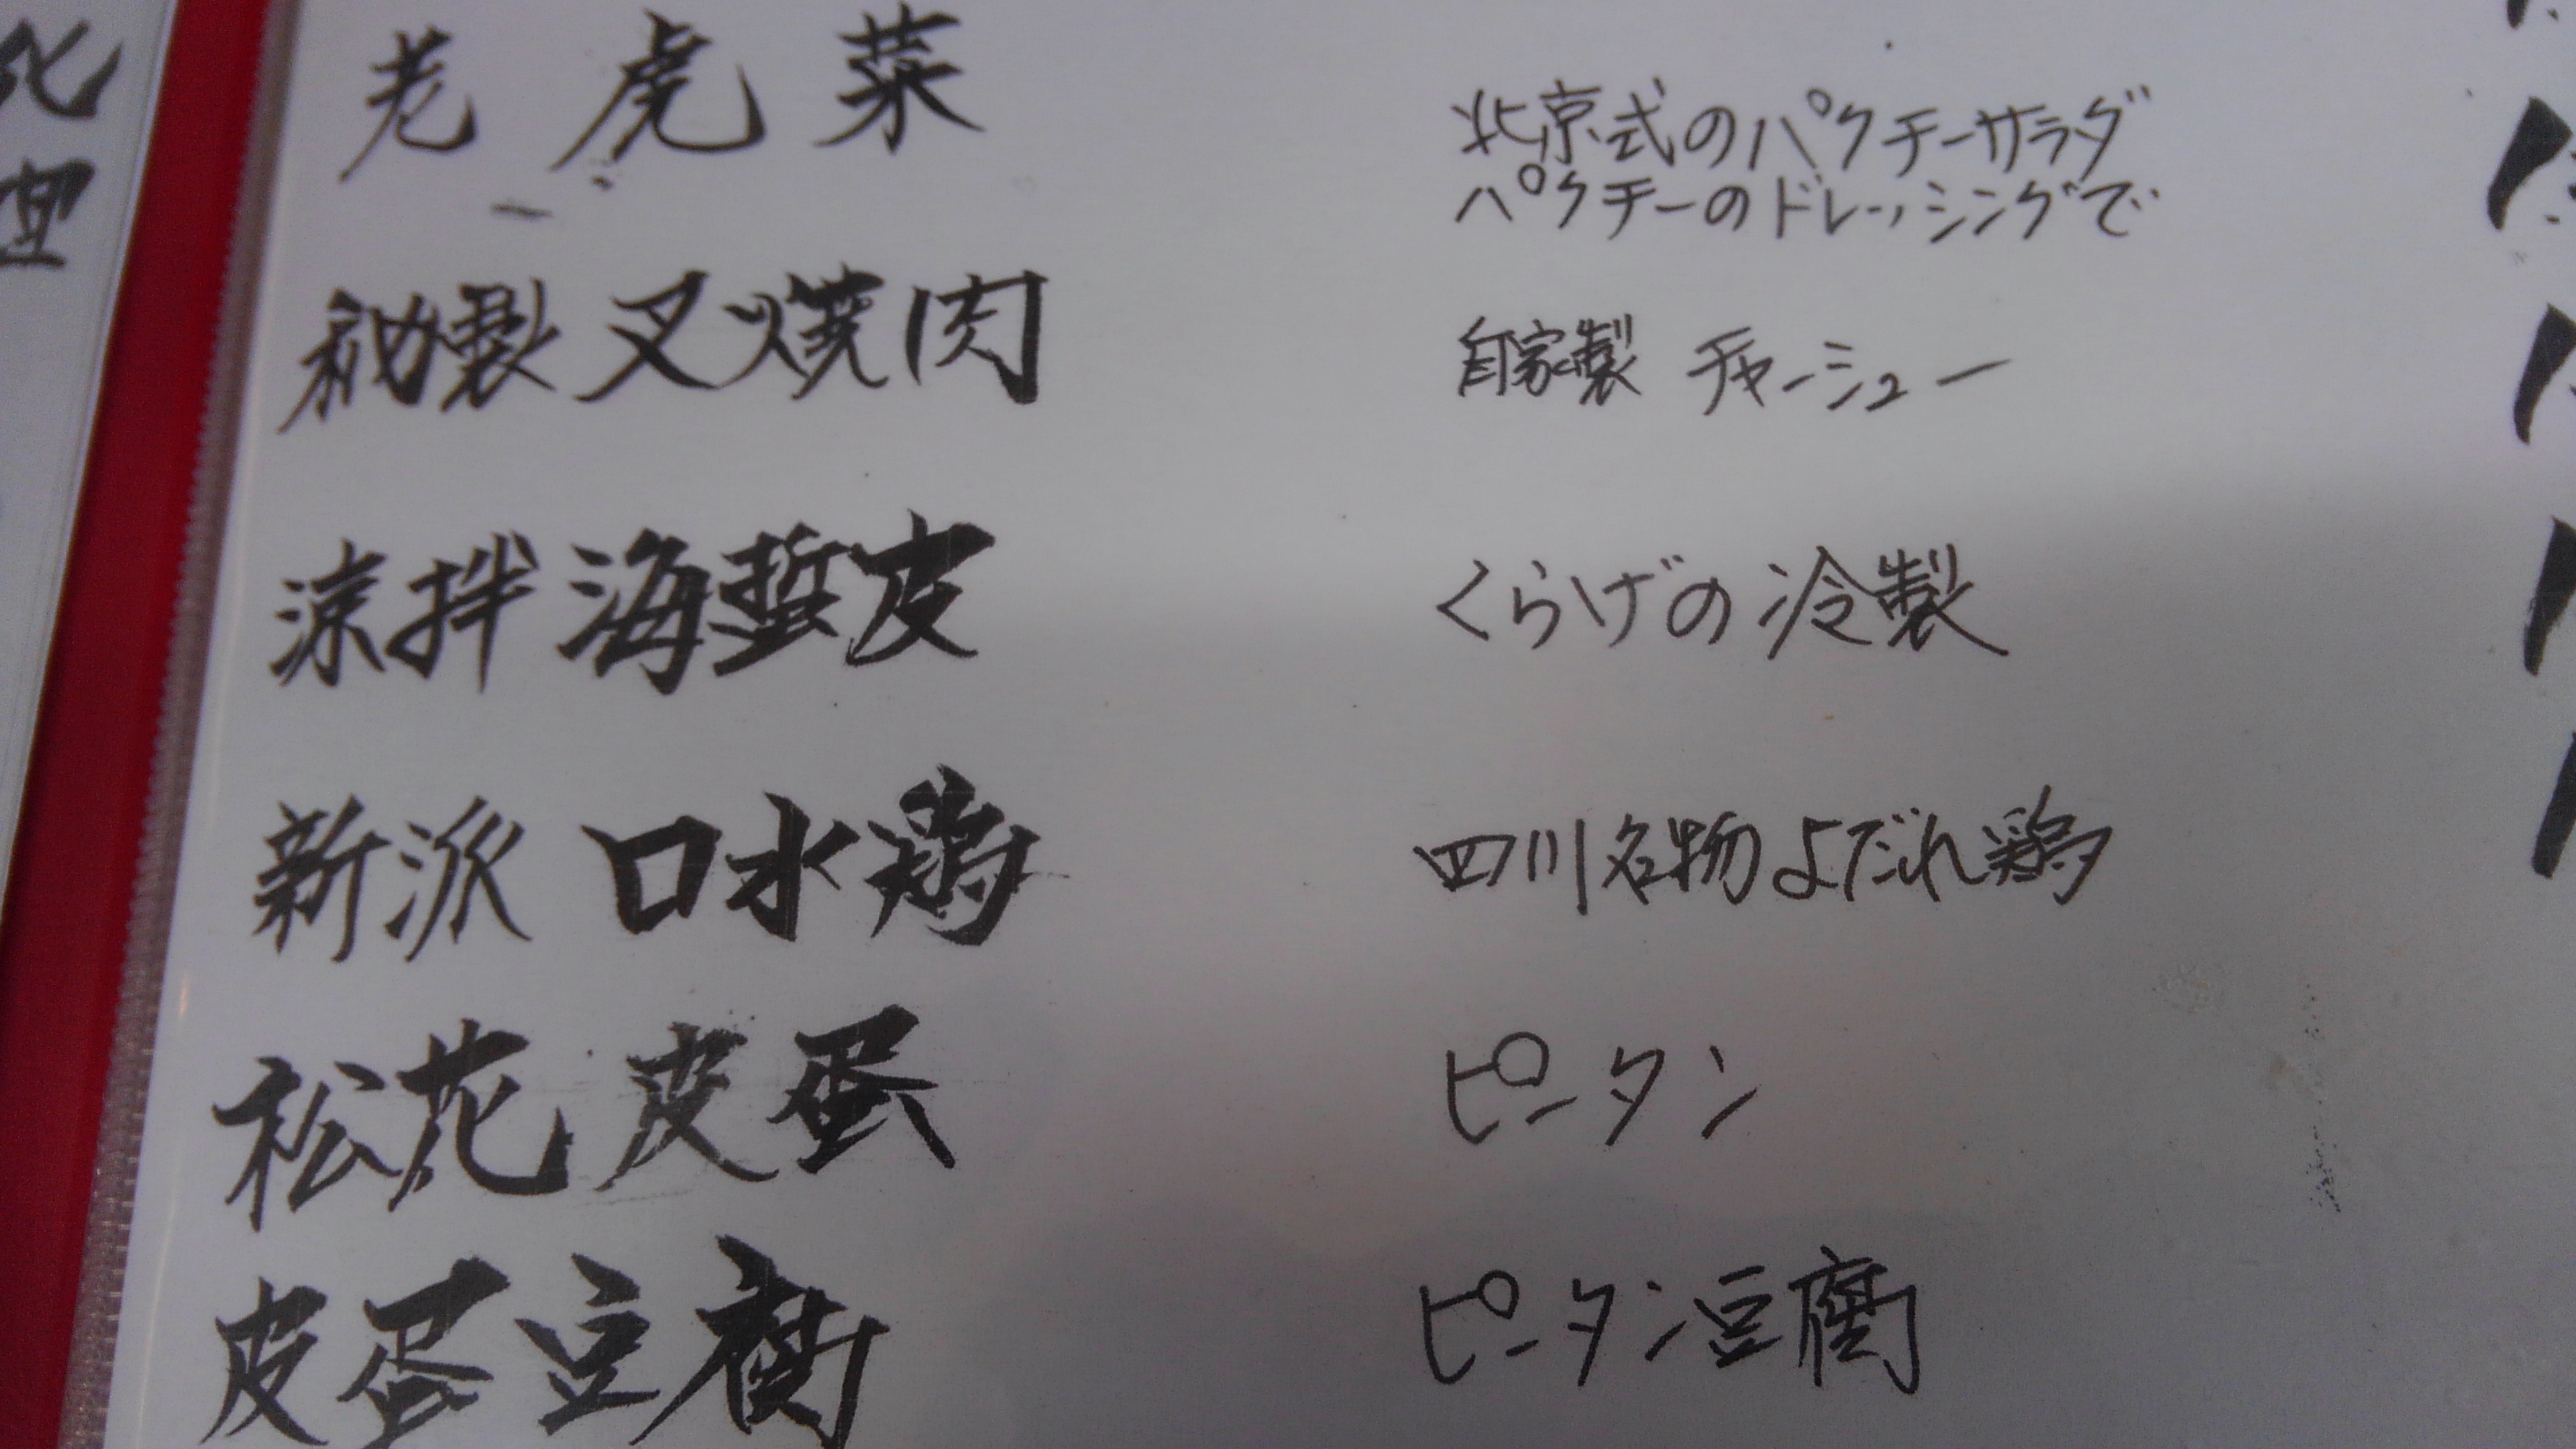 老虎菜
北京式のパクチーサラダ
パクチーのドレッシングで
秘製叉焼肉
自家製 チャーシュー
涼拌海蜇皮
くらげの冷製
新派口水鶏
四川名物よだれ鶏
松花皮蛋
ピータン
皮蛋豆腐
ピータン豆腐